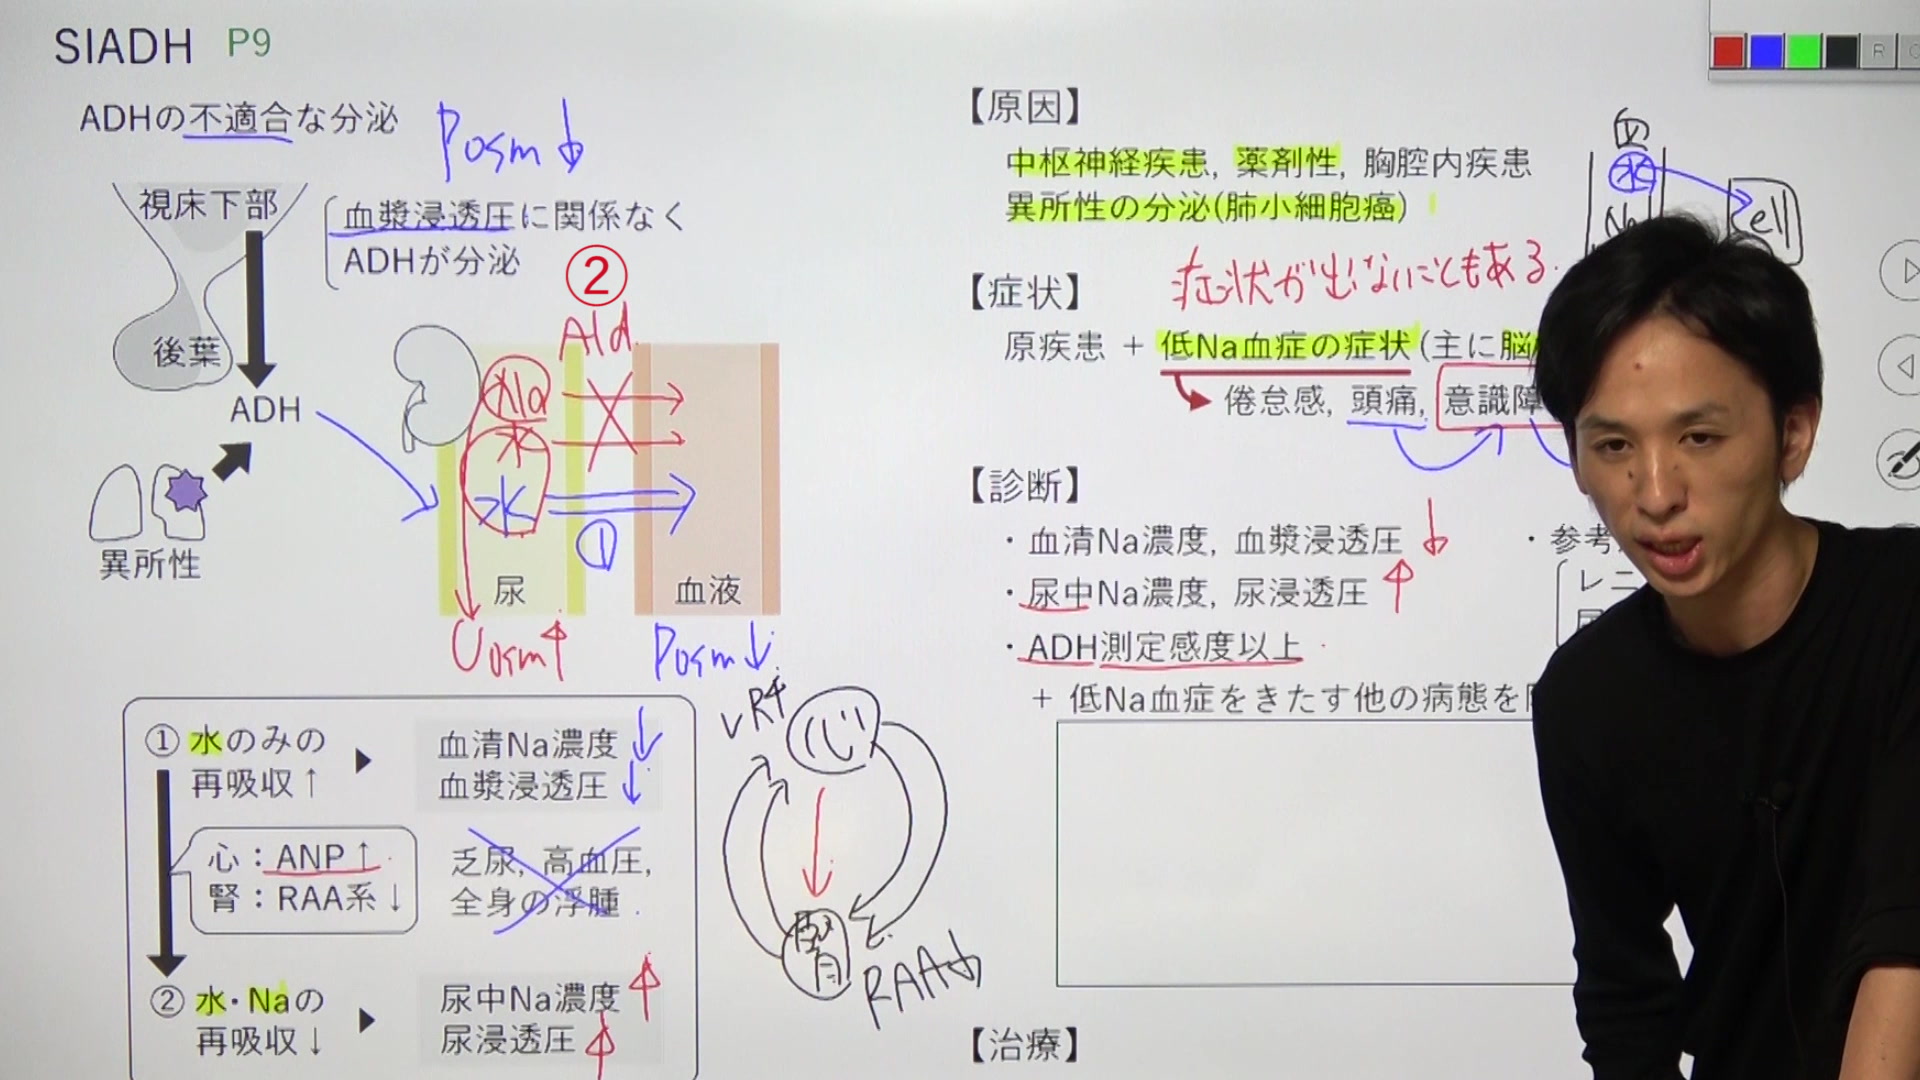 SIADH P9
ADHの不適合な分泌
Posm↓
視床下部
血漿浸透圧に関係なく
ADHが分泌
後葉
ADH
異所性
②
Ald
Na
水
水
①
尿
血液
Uosm↑
Posm↓
① 水のみの
再吸収↑
血清Na濃度↓
血漿浸透圧↓
心：ANP↑
腎：RAA系↓
乏尿, 高血圧,
全身の浮腫
② 水・Naの
再吸収↓
尿中Na濃度↑
尿浸透圧↑
VR↑
心
腎
RAA↓
【原因】
中枢神経疾患, 薬剤性, 胸腔内疾患
異所性の分泌(肺小細胞癌)
血
水
Na
cell
【症状】
症状が出ないこともある.
原疾患 + 低Na血症の症状 (主に脳
倦怠感, 頭痛, 意識障
【診断】
・血清Na濃度, 血漿浸透圧↓
・尿中Na濃度, 尿浸透圧↑
・ADH測定感度以上
+ 低Na血症をきたす他の病態を
・参考
レニ
【治療】